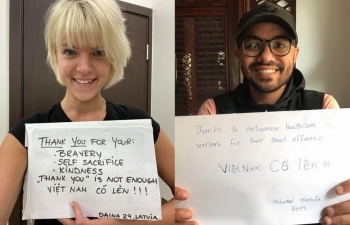 THANK YOU FOR YOUR:
• BRAVERY
• SELF SACRIFICE
• KINDNESS
„THANK YOU” IS NOT ENOUGH
VIỆT NAM CỐ LÊN !!!
DAINA 29, LATVIA
Thanks to vietnamese healthcare
workers for their great efforts!!
VIỆT NAM Cố lên !!!
Mohamed
Egypt